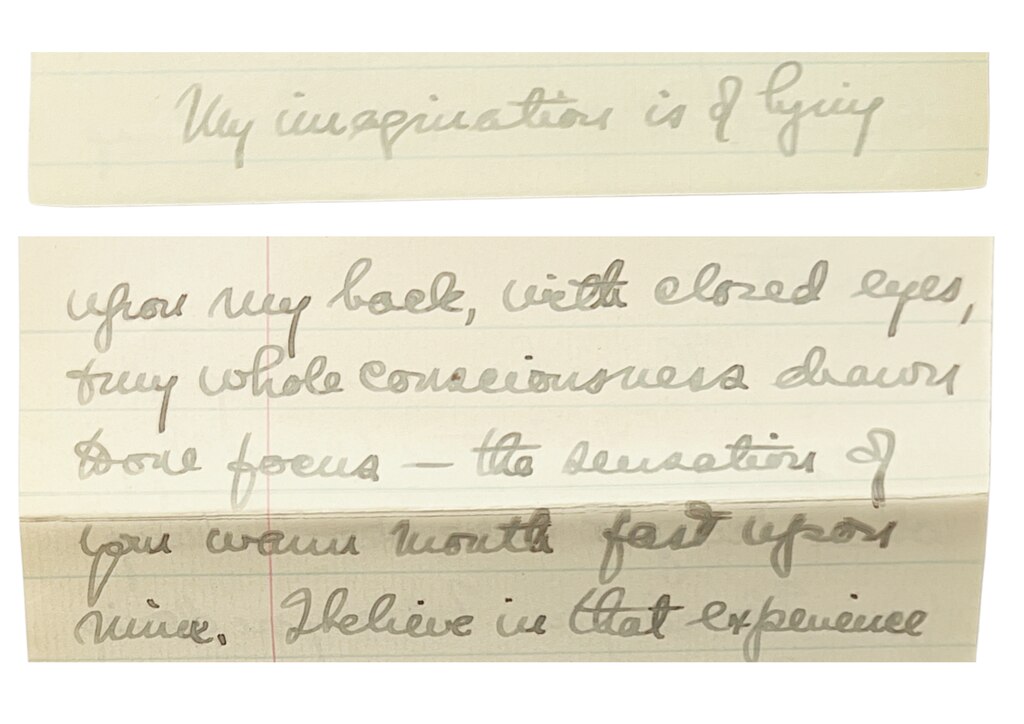 My imagination is of lying
upon my back, with closed eyes,
& my whole consciousness drawn
to one focus — the sensation of
your warm mouth fast upon
mine. I believe in that experience